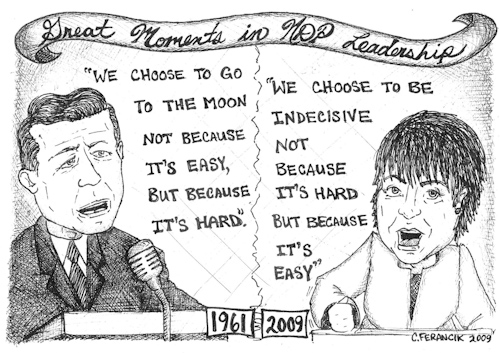 Great Moments in NDP Leadership
"WE CHOOSE TO GO
TO THE MOON
NOT BECAUSE
IT'S EASY,
BUT BECAUSE
IT'S HARD".
"WE CHOOSE TO BE
INDECISIVE
NOT
BECAUSE
IT'S HARD
BUT BECAUSE
IT'S
EASY"
1961
2009
C. FERANCIK 2009